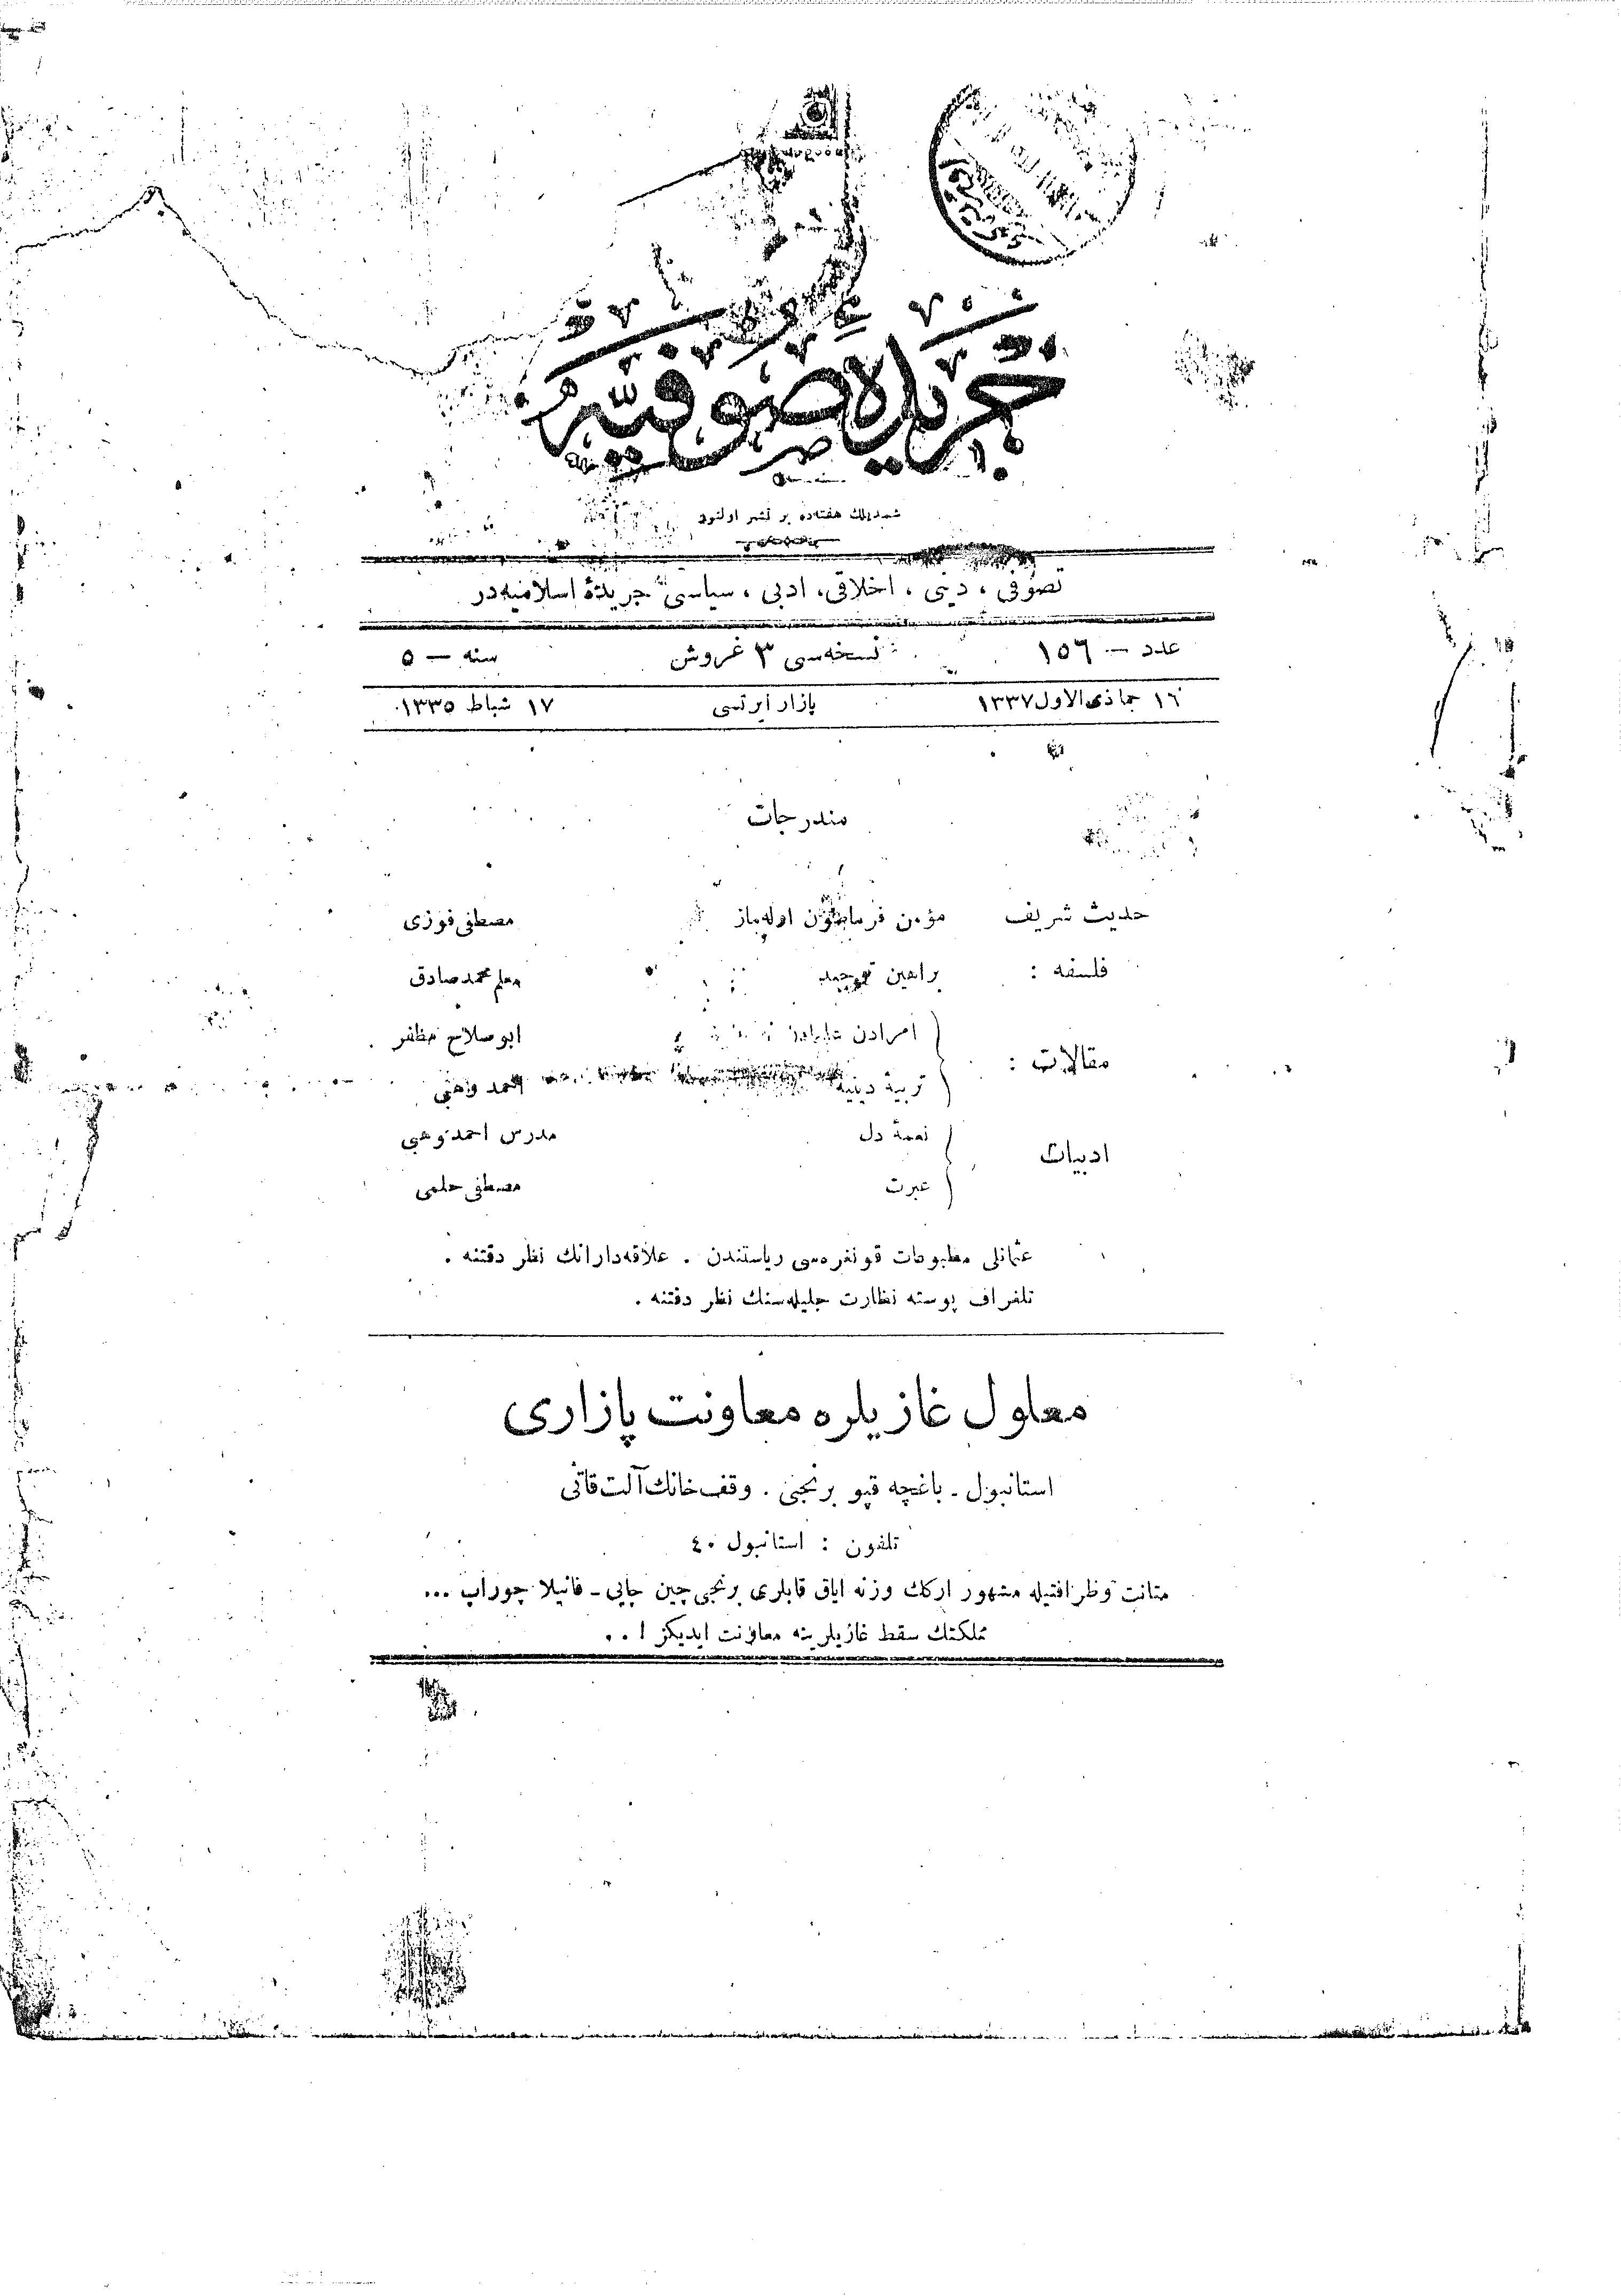 جريدۀ صوفيه
شمديلك هفته‌ده بر نشر اولنور
تصوفى ، دينى ، اخلاقى، ادبى ، سياسى جريدۀ اسلاميه‌در
عدد — ١٥٦ نسخه‌سى ٣ غروش سنه — ٥
١٦ جماذى‌الاول ١٣٣٧ پازار ايرتسى ١٧ شباط ١٣٣٥
مندرجات
حديث شريف مؤمن اوله‌ماز مصطفى فوزى
فلسفه : براهين توحيد معلم محمد صادق
مقالات : امرادن ابو صلاح مظفر
تربيۀ دينيه احمد وهبى
ادبيات نغمۀ دل مدرس احمد وهبى
عبرت مصطفى حلمى
عثمانلى مطبوعات قونغره‌سى رياستندن . علاقه‌دارانك نظر دقتنه .
تلغراف پوسته نظارت جليله‌سنك نظر دقتنه .
معلول غازيلره معاونت پازارى
استانبول ـ باغچه قپو برنجى . وقف خانك آلت قاتى
تلفون : استانبول ٤٠
متانت وظرافتيله مشهور اركك وزنه اياق قابلرى برنجى چين چايى ـ فانيلا چوراپ ...
مملكتك سقط غازيلرينه معاونت ايديكز ! . .